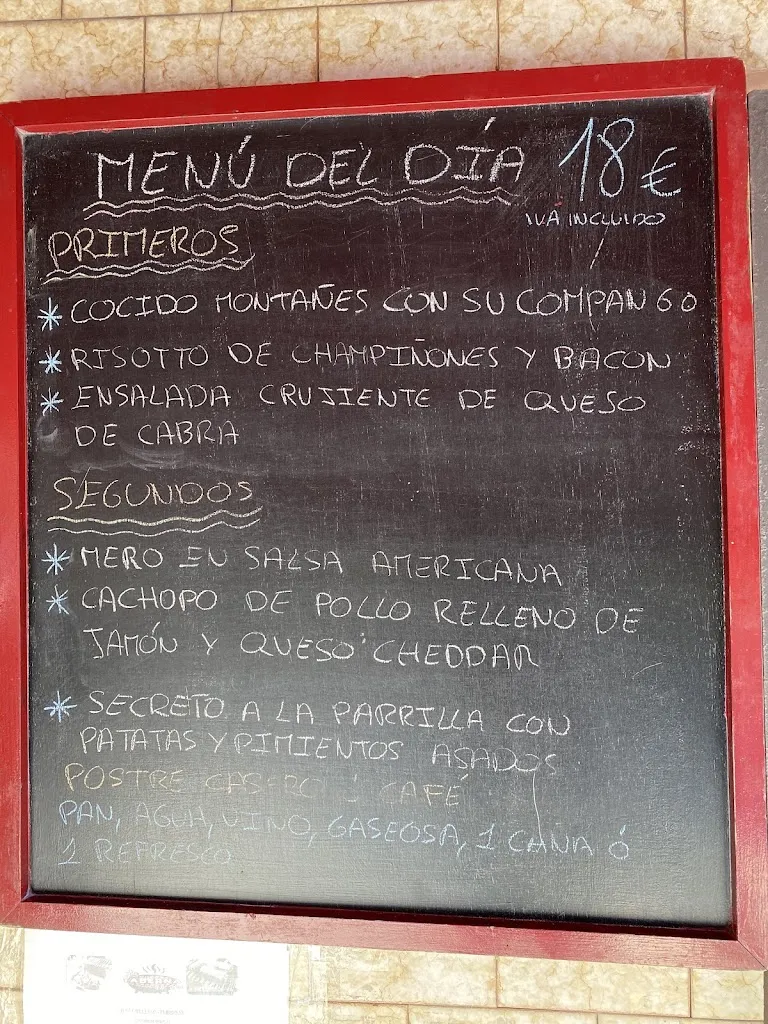 MENÚ DEL DÍA 18€
IVA INCLUIDO
PRIMEROS
* COCIDO MONTAÑES CON SU COMPANGO
* RISOTTO DE CHAMPIÑONES Y BACON
* ENSALADA CRUJIENTE DE QUESO
DE CABRA
SEGUNDOS
* MERO EN SALSA AMERICANA
* CACHOPO DE POLLO RELLENO DE
JAMÓN Y QUESO CHEDDAR
* SECRETO A LA PARRILLA CON
PATATAS Y PIMIENTOS ASADOS
POSTRE CASERO Ó CAFÉ
PAN, AGUA, VINO, GASEOSA, 1 CAÑA Ó
1 REFRESCO